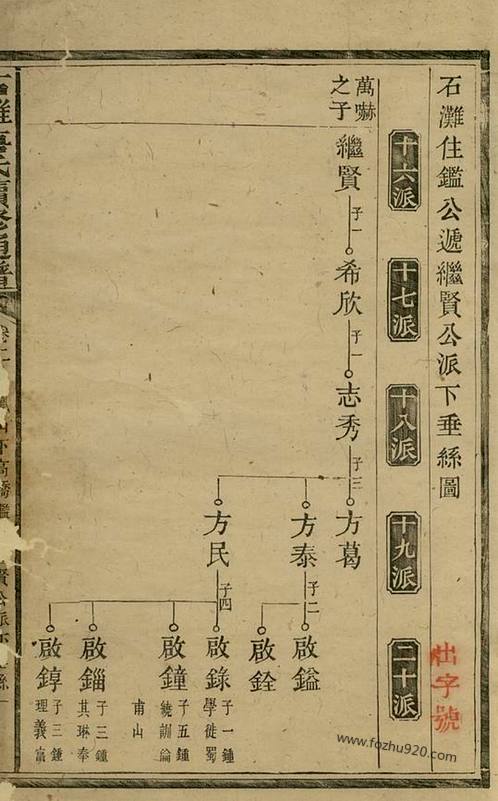 石灘住鑑公遞繼賢公派下垂絲圖
出字號
十六派
十七派
十八派
十九派
二十派
萬嚇
之子
繼賢
子一
希欣
子一
志秀
子三
方葛
方泰
子二
啟鎰
啟銓
方民
子四
啟錄
子一鍾
學徙蜀
啟鐘
子五鍾
繞訓論
甫山
啟錙
子三鍾
其琳奉
啟錞
子三鍾
理義富
氏續修通譜
www.fozhu920.com